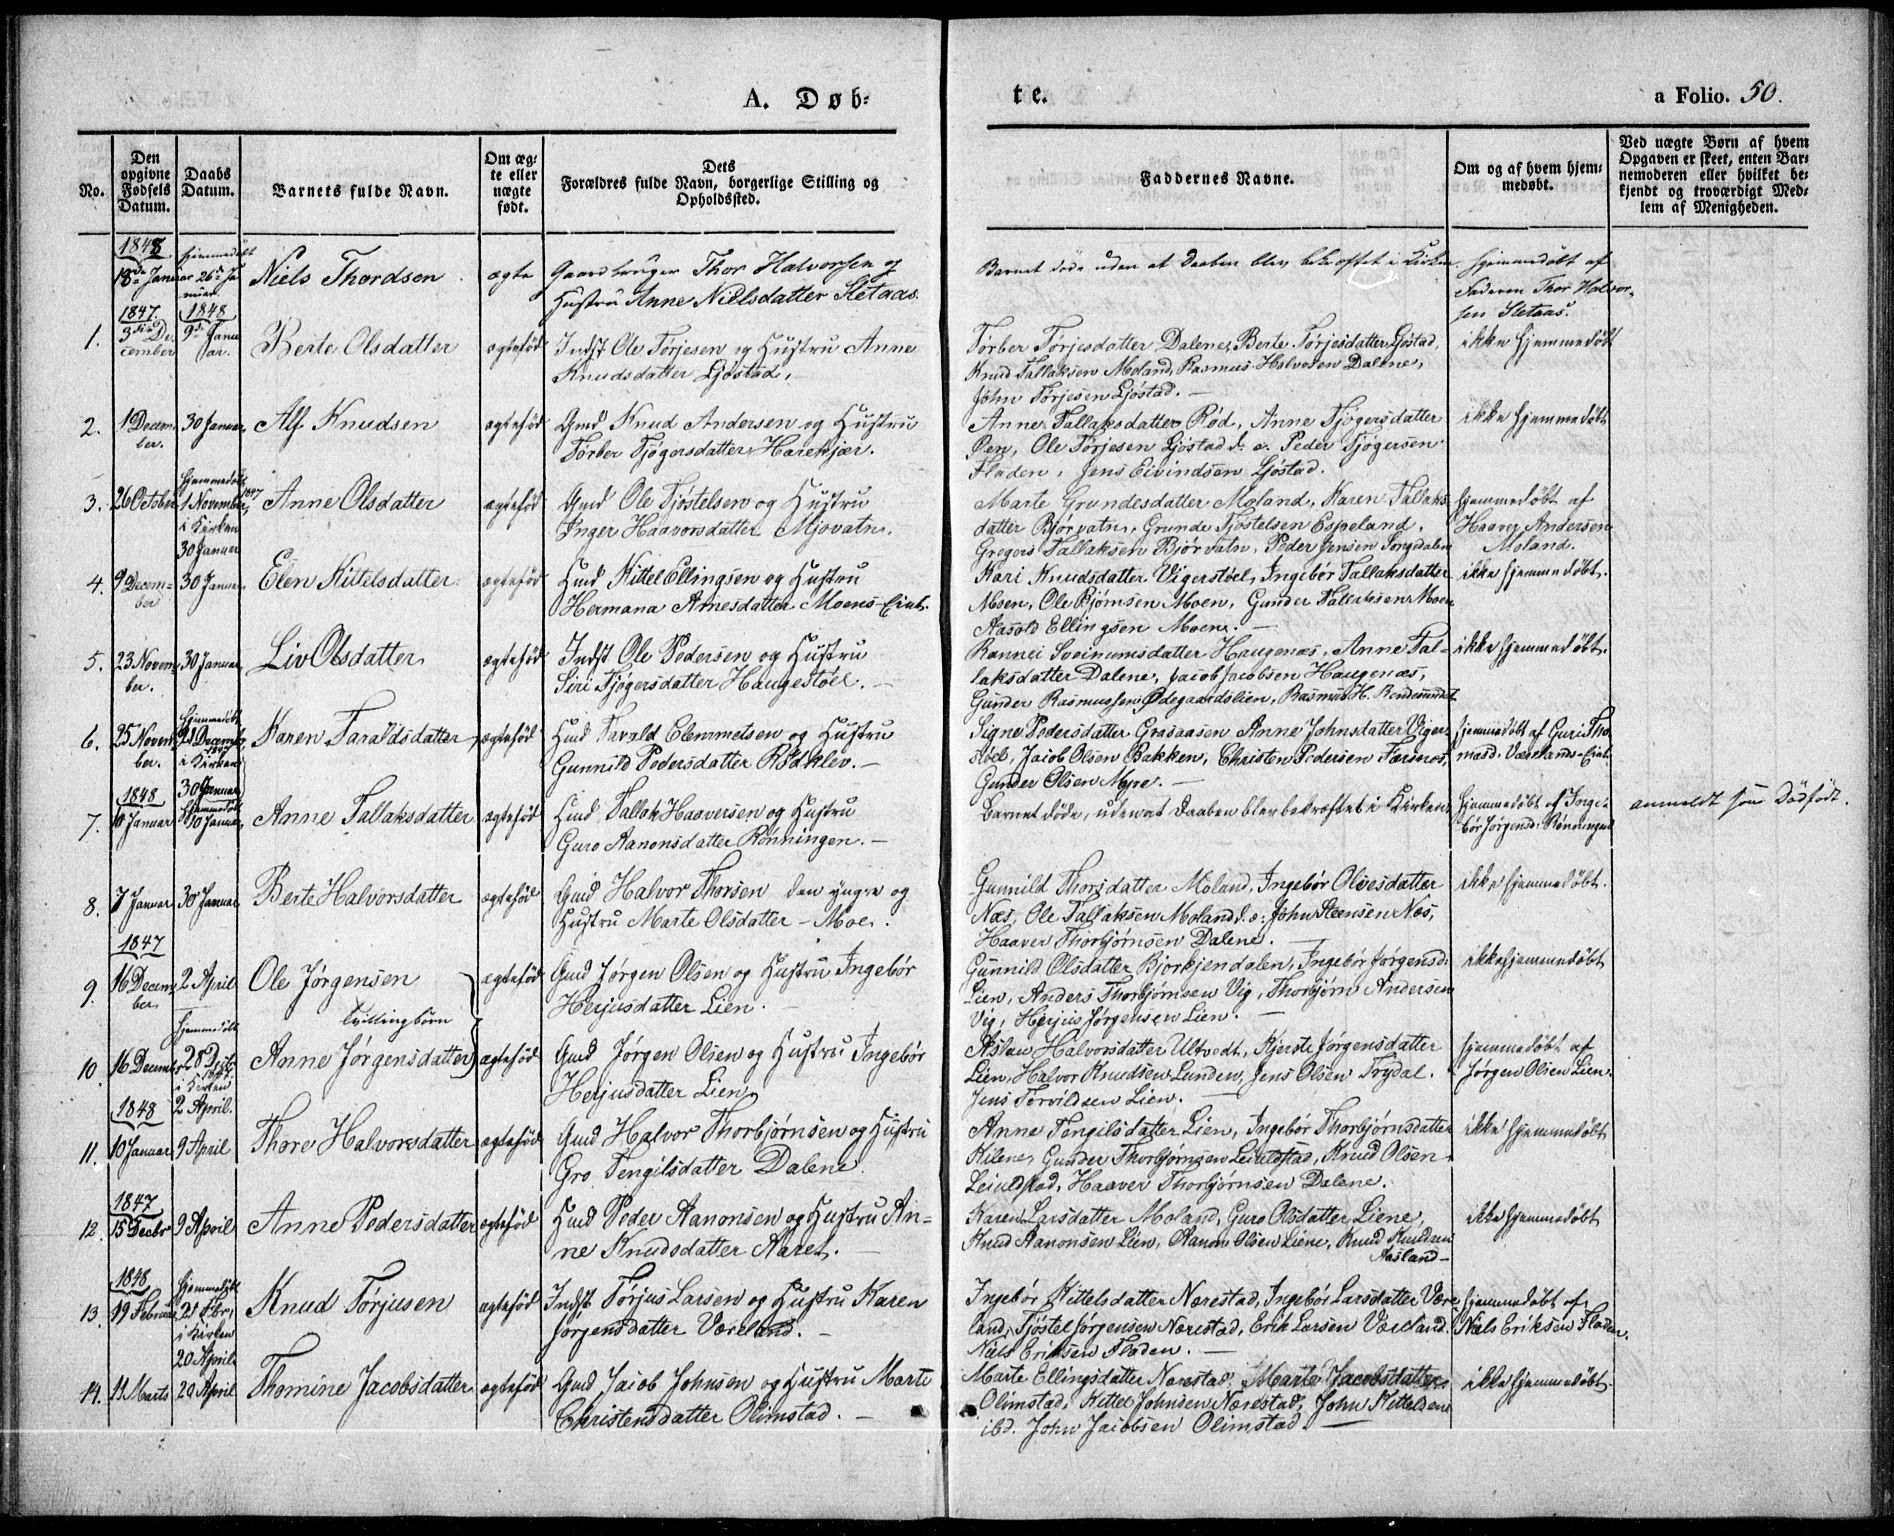 A. Døb-
te.
a Folio. 50.
No.
Den opgivne Fødsels Datum.
Daabs Datum.
Barnets fulde Navn.
Om ægte eller uægte født.
Dets Forældres fulde Navn, borgerlige Stilling og Opholdssted.
Faddernes Navne.
Om og af hvem hjemmedøbt.
Ved uægte Børn af hvem Opgaven er skeet, enten Barnemoderen eller hvilket bekjendt og troværdigt Medlem af Menigheden.
1848 hjemmedøbt
18de Januar 26de Januar Niels Thordsen ægte Gaardbruger Thor Halvorsen og
Hustru Anne Nielsdatter Sletaas.
Barnet døde uden at Daaben blev bekræftet i Kirken
hjemmedøbt af
Faderen Thor Halvorsen
Sletaas.
1847. 1848
1. 3die December 9de Januar. Berte Olsdatter ægtefød Indst Ole Torjesen og Hustru Anne
Knudsdatter Ljøstad.
Torber Torjesdatter Dalene, Berte Torjesdatter Ljøstad,
Knud Tallaksen Moland, Rasmus Halvorsen Dalene,
John Torjesen Ljøstad.
ikke hjemmedøbt
2. 1 December. 30 Januar Alf Knudsen ægtefød Gmd Knud Andersen og Hustru
Torber Tjøgersdatter Harekjær.
Anne Tallaksdatter Rød, Anne Tjøgersdatter
Øen, Ole Torjesen Ljøstad d. æ. Peder Tjøgersen
Fladen, Jens Eivindsen Ljøstad.
ikke hjemmedøbt
3. 26 October hjemmedøbt 1 November 1847 i Kirken 30 Januar Anne Olsdatter ægtefød Gmd Ole Tjøstelsen og Hustru
Inger Haavorsdatter Mjovatn.
Marte Grundesdatter Moland, Karen Tallaks-
datter Bjørvatn, Grunde Tjøstelsen Espeland,
Gregers Tallaksen Bjørvatn, Peder Jensen Songedalen
hjemmedøbt af
Haaver Andersen
Moland.
4. 9 December 30 Januar Elen Kittelsdatter ægtefød Hmd Kittel Ellingsen og Hustru
Hermana Arnesdatter Moens-Eiet.
Kari Knudsdatter Vigerstøel, Ingebør Tallaksdatter
Moen, Ole Bjørnsen Moen, Gunder Tallaksen Moen
Aasold Ellingsen Moen.
ikke hjemmedøbt.
5. 23 November. 30 Januar Liv Olsdatter ægtefød Indst Ole Pedersen og Hustru
Siri Tjøgersdatter Haugestøel.
Rannei Sveinumsdatter Haugenæs, Anne Tal-
laksdatter Dalene, Jacob Jacobsen Haugenæs,
Gunder Rasmussen Ødegaardslien, Rasmus H.
ikke hjemmedøbt.
6. 25 November. hjemmedøbt 21 Decembr 1847 i Kirken 30 Januar Karen Taraldsdatter ægtefød Hmd Tarald Clemmetsen og Hustru
Gunnild Pedersdatter Rødklev.
Signe Pedersdatter Grasaasen Anne Johnsdatter Viger-
støel, Jacob Olsen Bakken, Christen Pedersen Færsnæs,
Gunder Olsen Myre.
hjemmedøbt af Guri Tho-
masd. Væselands-Eiet
1848
7. 10 Januar hjemmedøbt 10 Januar Anne Tallaksdatter ægtefød Hmd. Tallak Haaversen og Hustru
Guro Aanonsdatter Rønningen.
Barnet døde, uden at Daaben blev bekræftet i Kirken
hjemmedøbt af Inge-
bør Jørgensd. Rønningen
anmeldt som Dødfødt.
8. 7 Januar 30 Januar Berte Halvorsdatter ægtefød Gmd Halvor Thorsen den yngre og
Hustru Marte Olsdatter – Moe.
Gunnild Thorsdatter Moland, Ingebør Olvesdatter
Næs, Ole Tallaksen Moland d. æ. John Steensen Næs,
Haaver Thorbjørnsen Dalene.
ikke hjemmedøbt.
1847
9. 16 December 2 April Ole Jørgensen ægtefød Gmd Jørgen Olsen og Hustru Ingebør
Herjusdatter Lien.
Tvillingbørn
Gunnild Olsdatter Bjorkjendalen, Ingebør Jørgensd.
Lien, Anders Thorbjørnsen Vig, Thorbjørn Andersen
Vig, Herjus Jørgensen Lien.
ikke hjemmedøbt
10. 16 Decembr hjemmedøbt 28 Decbr 1847 i Kirken 2 April. Anne Jørgensdatter ægtefød Gmd Jørgen Olsen og Hustru Ingebør
Herjusdatter Lien
Aslau Halvorsdatter Ultvedt, Kjersti Jørgensdatter
Lien, Halvor Knudsen Lunden, Jens Olsen Trydal.
Jens Torvildsen Lien.
hjemmedøbt af
Jørgen Olsen Lien.
1848
11. 10 Januar 9 April Thore Halvorsdatter ægtefød Gmd Halvor Thorbjørnsen og Hustru
Gro Tengilsdatter Dalene
Anne Tengilsdatter Lien, Ingebør Thorbjørnsdatter
Kilene, Gunder Thorbjørnsen Leiulstad, Knud Olsen
Leiulstad, Haaver Thorbjørnsen Dalene.
ikke hjemmedøbt
1847
12. 15 Decbr 9 April Anne Pedersdatter ægtefød Hmd Peder Aanonsen og Hustru An-
ne Knudsdatter Aaret.
Karen Larsdatter Moland, Guro Olsdatter Liene,
Knud Aanonsen Lien, Aanon Olsen Liene, Knud Knudsen
Aasland
ikke hjemmedøbt
1848
13. 19 Februar hjemmedøbt 21 Febr. i Kirken 20 April Knud Torjusen ægtefød Indst Torjus Larsen og Hustru Karen
Jørgensdatter Væreland.
Ingebør Kittelsdatter Nærestad, Ingebør Larsdatter Være-
land, Tjøstel Jørgensen Nærestad, Erik Larsen Væreland,
Niels Eriksen Fladen.
hjemmedøbt af
Niels Eriksen Fladen.
14. 11 Marts 20 April Thomine Jacobsdatter ægtefød Gmd Jacob Johnsen og Hustru Marte
Christensdatter Olimstad.
Marte Ellingsdatter Nærestad, Marte Jacobsdatter
Olimstad, Kittel Johnsen Nærestad, John Kittelsen
ibd. John Jacobsen Olimstad.
ikke hjemmedøbt.